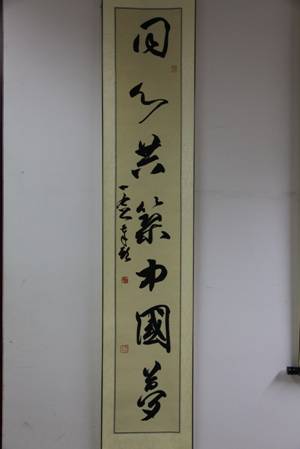 同心共築中國夢